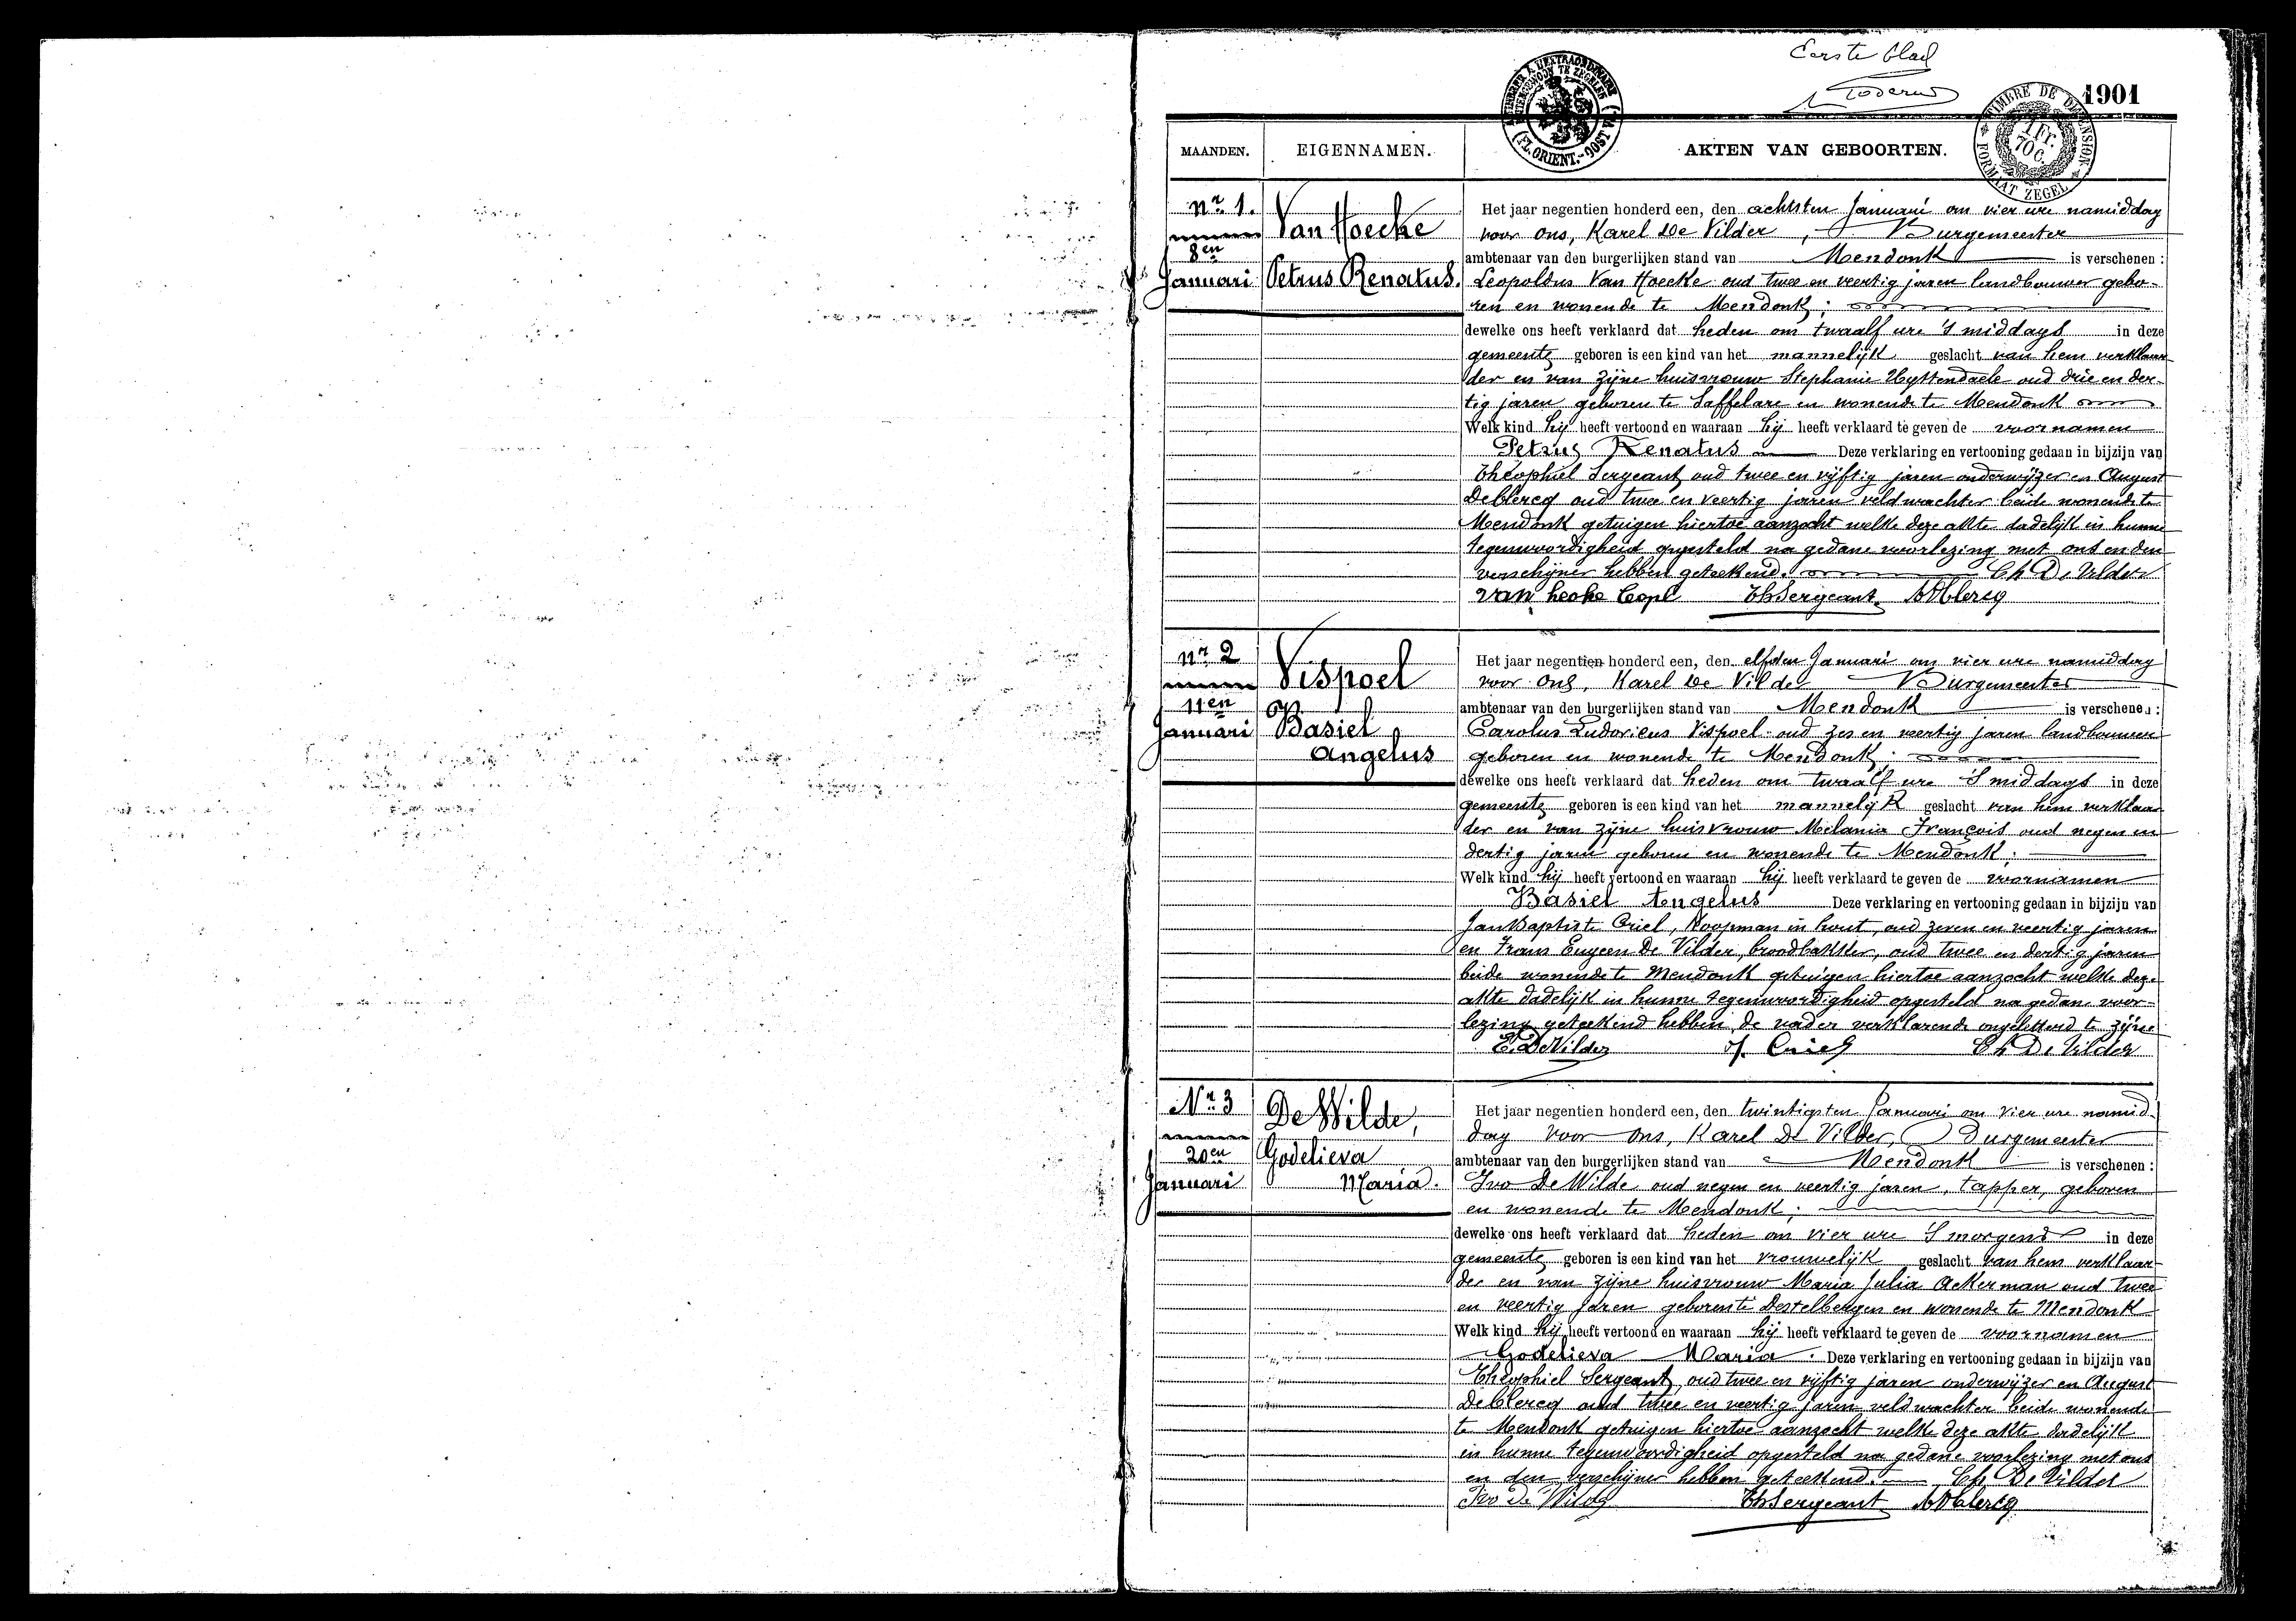 Eerste blad
1901
TIMBRE DE DIMENSION
FORMAAT ZEGEL
1 Fr. 70 C.
(FL. ORIENT.-OOST VL.)
MAANDEN. EIGENNAMEN. AKTEN VAN GEBOORTEN.
Nr. 1.
8en
Januari
Van Hoecke
Petrus Renatus.
Het jaar negentien honderd een, den achtsten Januari om vier ure namiddag
voor ons, Karel De Vilder, Burgemeester
ambtenaar van den burgerlijken stand van Mendonk is verschenen :
Leopoldus Van Hoecke oud twee en veertig jaren landbouwer gebo-
ren en wonende te Mendonk ;
dewelke ons heeft verklaard dat heden om twaalf ure 's middags in deze
gemeente geboren is een kind van het mannelijk geslacht van hem verklaar
der en van zijne huisvrouw Stephanie Uyttendaele oud drie en der-
tig jaren geboren te Saffelare en wonende te Mendonk
Welk kind hij heeft vertoond en waaraan hij heeft verklaard te geven de voornamen
Petrus Renatus Deze verklaring en vertooning gedaan in bijzijn van
Théophiel Sergeant oud twee en vijftig jaren onderwijzer en August
Declercq oud twee en veertig jaren veldwachter beide wonende te
Mendonk getuigen hiertoe aanzocht welke deze akte dadelijk in hunne
tegenwoordigheid opgesteld na gedane voorlezing met ons en den
verschijner hebben geteekend. Ch De Vilder
van hecke Leopl ThSergeant ADclercq
Nr 2
11en
Januari
Vispoel
Basiel
Angelus
Het jaar negentien honderd een, den elfden Januari om vier ure namiddag
voor ons, Karel De Vilder Burgemeester
ambtenaar van den burgerlijken stand van Mendonk is verschenen :
Carolus Ludovicus Vispoel oud zes en veertig jaren landbouwer
geboren en wonende te Mendonk ;
dewelke ons heeft verklaard dat heden om twaalf ure 's middags in deze
gemeente geboren is een kind van het mannelijk geslacht van hem verklaar
der en van zijne huisvrouw Melania François oud negen en
dertig jaren geboren en wonende te Mendonk ;
Welk kind hij heeft vertoond en waaraan hij heeft verklaard te geven de voornamen
Basiel Angelus Deze verklaring en vertooning gedaan in bijzijn van
Jan Baptiste Criel, Koopman in hout, oud zeven en veertig jaren
en Frans Eugeen De Vilder, broodbakker, oud twee en dertig jaren
beide wonende te Mendonk getuigen hiertoe aanzocht welke deze
akte dadelijk in hunne tegenwoordigheid opgesteld na gedane voor-
lezing geteekend hebben, de vader verklarende ongeletterd te zijne
E. DeVilder J. Criel Ch De Vilder
Nr. 3
20en
Januari
De Wilde,
Godelieva
Maria.
Het jaar negentien honderd een, den twintigsten Januari om vier ure namid-
dag voor ons, Karel De Vilder, Burgemeester
ambtenaar van den burgerlijken stand van Mendonk is verschenen :
Ivo De Wilde oud negen en veertig jaren, tapper, geboren
en wonende te Mendonk ;
dewelke ons heeft verklaard dat heden om vier ure 's morgens in deze
gemeente geboren is een kind van het vrouwelijk geslacht van hem verklaar
der en van zijne huisvrouw Maria Julia Ackerman oud twee
en veertig jaren geboren te Destelbergen en wonende te Mendonk
Welk kind hij heeft vertoond en waaraan hij heeft verklaard te geven de voornamen
Godelieva Maria. Deze verklaring en vertooning gedaan in bijzijn van
Théophiel Sergeant, oud twee en vijftig jaren onderwijzer en August
Declercq oud twee en veertig jaren veldwachter beide wonende
te Mendonk getuigen hiertoe aanzocht welke deze akte dadelijk
in hunne tegenwoordigheid opgesteld na gedane voorlezing met ons
en den verschijner hebben geteekend. Ch De Vilder
Ivo De Wilde ThSergeant ADclercq